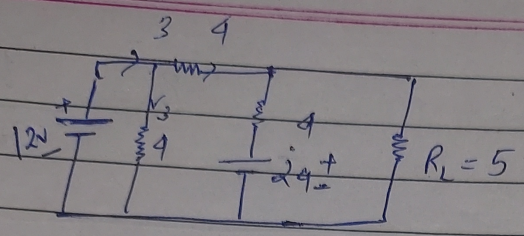 3 4
+
12v
3
4
4
24
+
R_L = 5